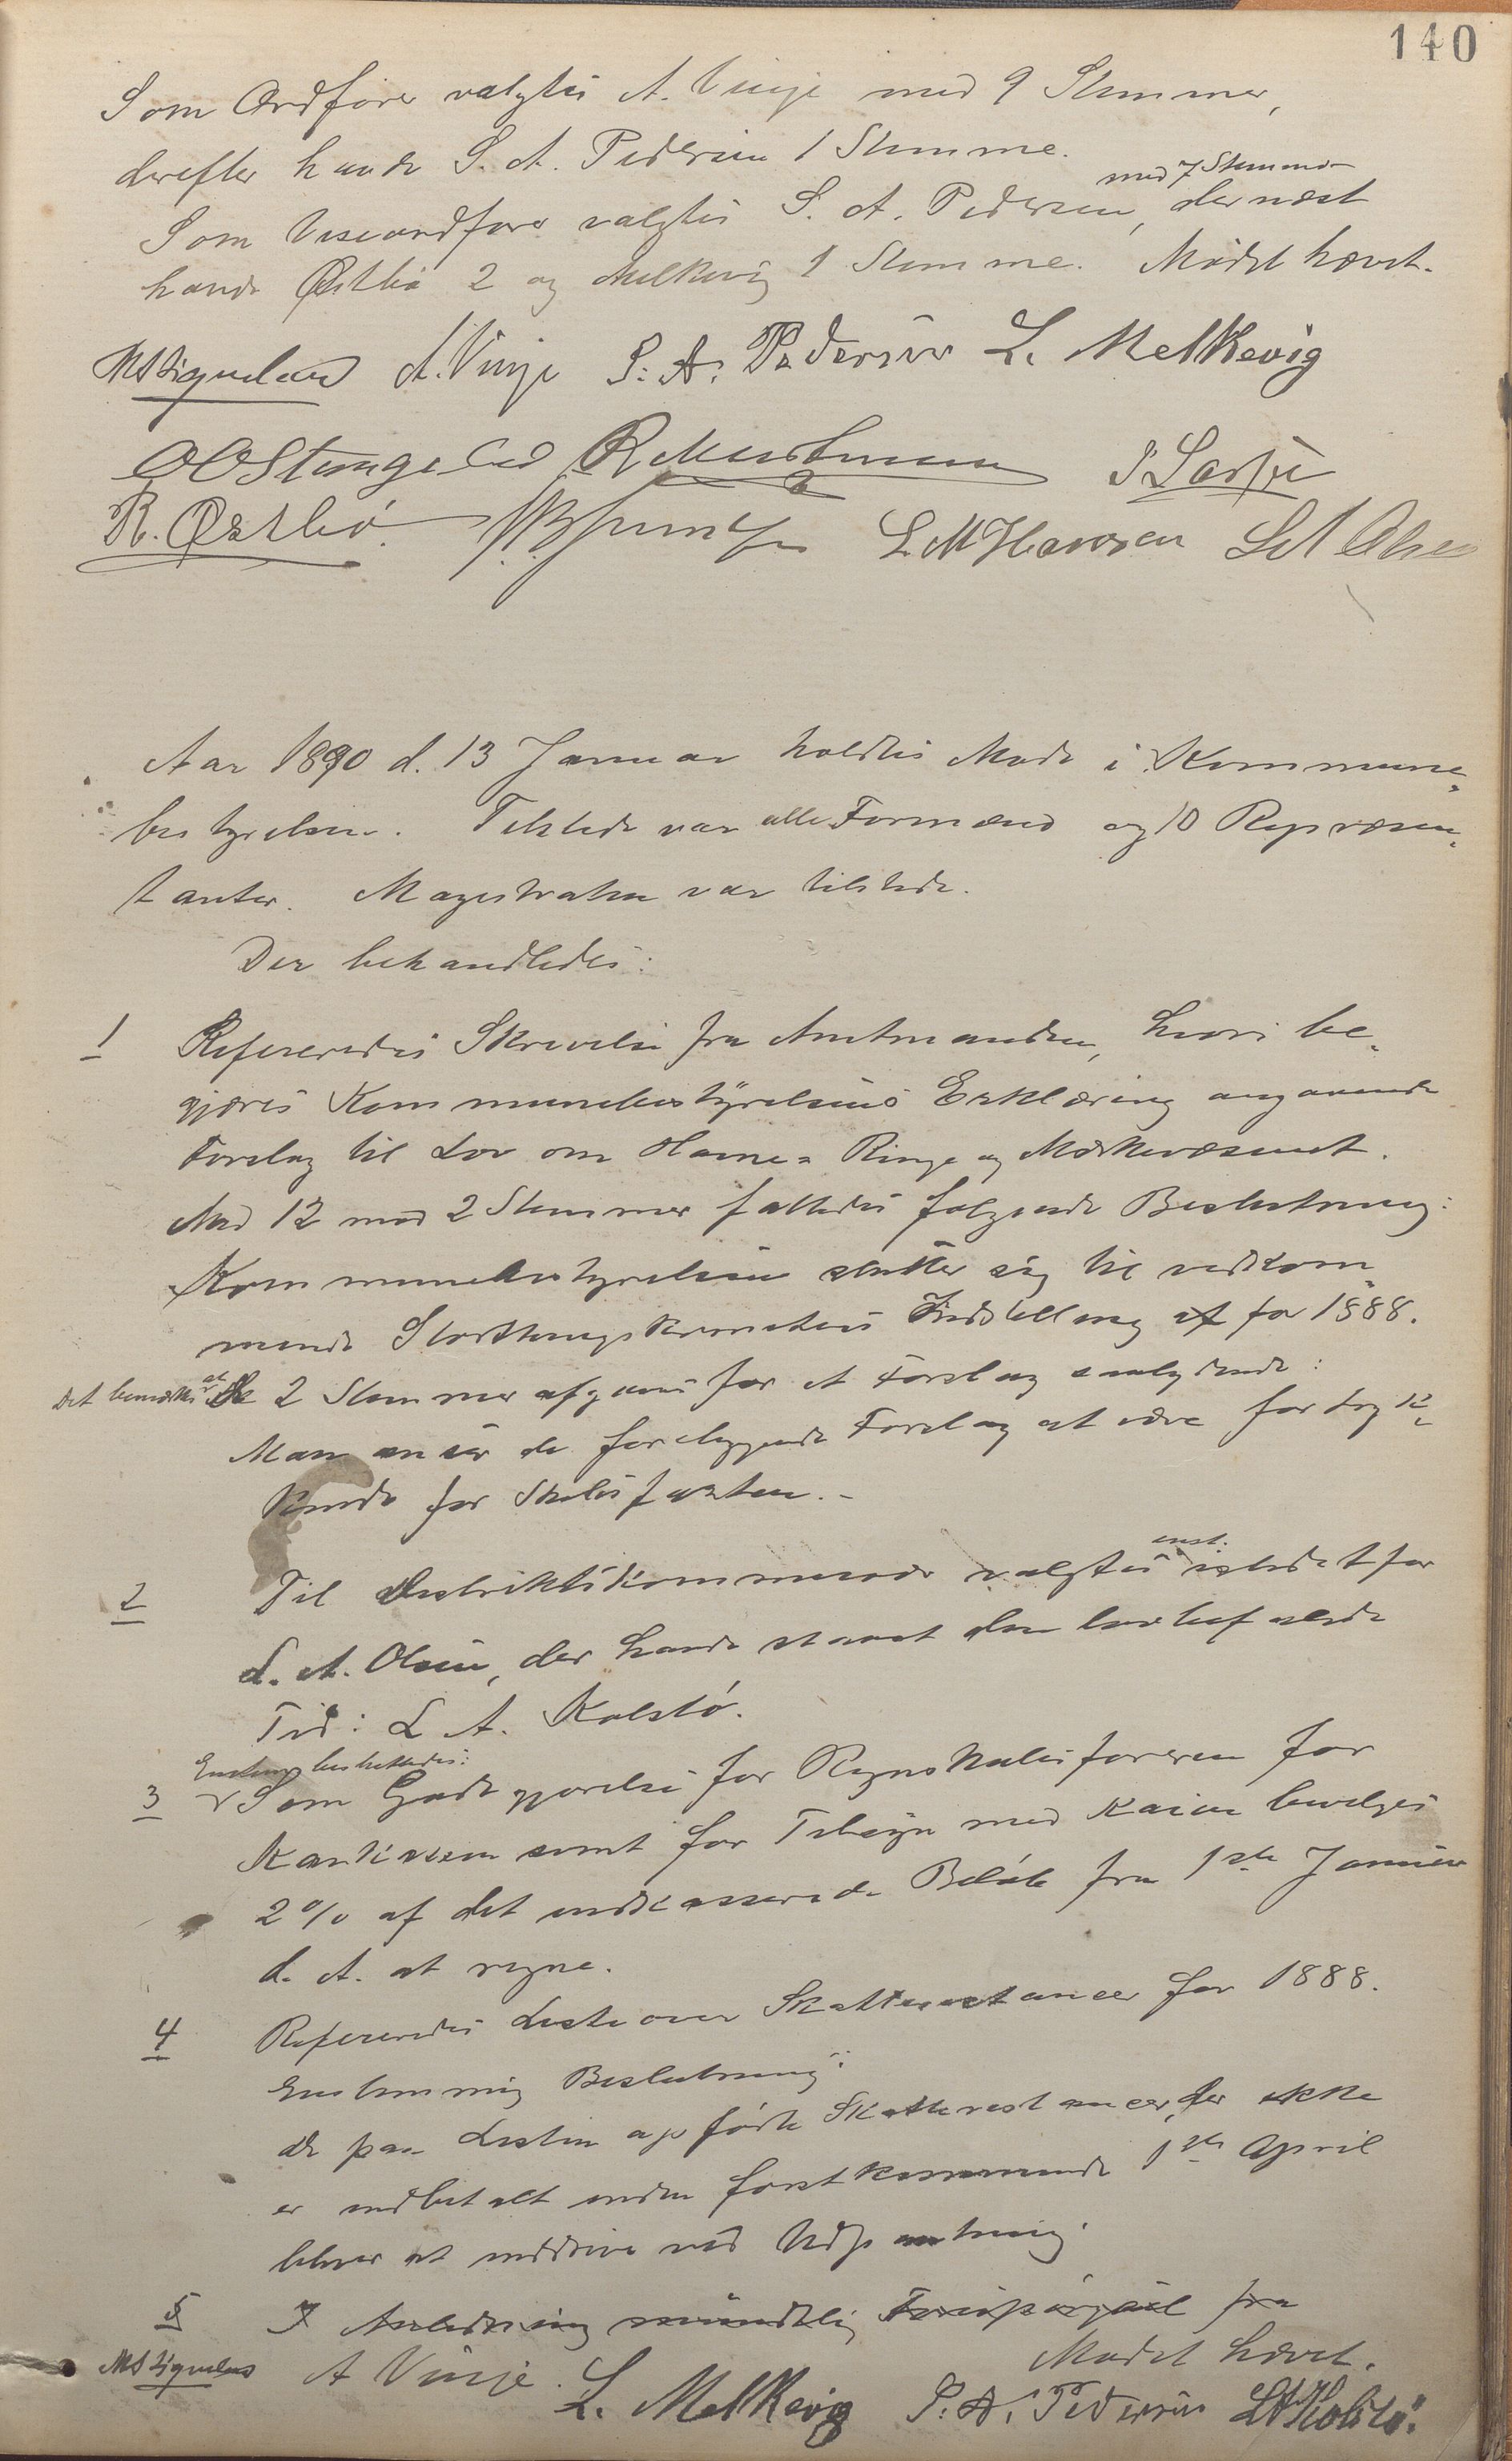 140
Som Ordfører valgtes A. Vinje med 9 Stemmer,
derefter havde S. A. Pedersen 1 Stemme.
Som Viseordfører valgtes S. A. Pedersen, med 7 Stemmer dernæst
havde Østbø 2 og Melkevig 1 Stemme. Mødet hævet.
A. Vinje S. A. Pedersen L. Melkevig
R. Østbø L M Hansen L A Olsen
Aar 1890 d. 13 Januar holdtes Møde i Kommune-
bestyrelsen. Tilstede var alle Formænd og 10 Repræsen-
tanter. Magistraten var tilstede.
Der behandledes:
1 Refereredes Skrivelse fra Amtmanden, hvori be-
gjæres Kommunebestyrelsens Erklæring angaaende
Forslag til Lov om Havne- Ringe og Mærkevæsenet.
Med 12 mod 2 Stemmer fattedes følgende Beslutning:
Kommunebestyrelsen slutter sig til vedkom-
mende Storthingskomites Indstilling af for 1888.
Det bemærkes at De 2 Stemmer afgaves for et Forslag saalydende:
Man anser de foreliggende Forslag at være fortryk-
kende for Skibsfarten.-
2 Til Distriktskommisær valgtes enst. istedetfor
L. A. Olsen, der havde staaet den lovbefalede
Tid: L A. Kolstø.
3 Enstem. besluttedes: Som Godtgjørelse for Regnskabsførsren for
Kaikassen samt for Tilsyn med Kaien bevilges
2% af det indkasserede Beløb fra 1ste Januar
d. A. at regne.
4 Refereredes Liste over Skatterestancer for 1888.
Enstemmig Beslutning:
de paa Listen opførte Skatterestancer, der ikke
er indbetalt inden førstkommende 1ste April
bliver at inddrive ved Udpantning.
5 I Anledning mundtlig Forespørgsel fra
Mødet hævet.
A Vinje. L. Melkevig S. A. Pedersen L A Kolstø.